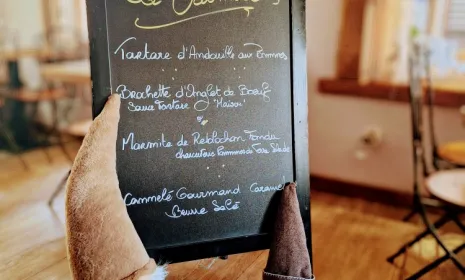 Tartare d'Andouille aux Pommes
Brochette d'Onglet de Bœuf
Sauce Tartare "Maison"
Marmite de Reblochon Fondu
charcuteries Pommes de Terre Salade
Cannelé Gourmand Caramel
Beurre Salé